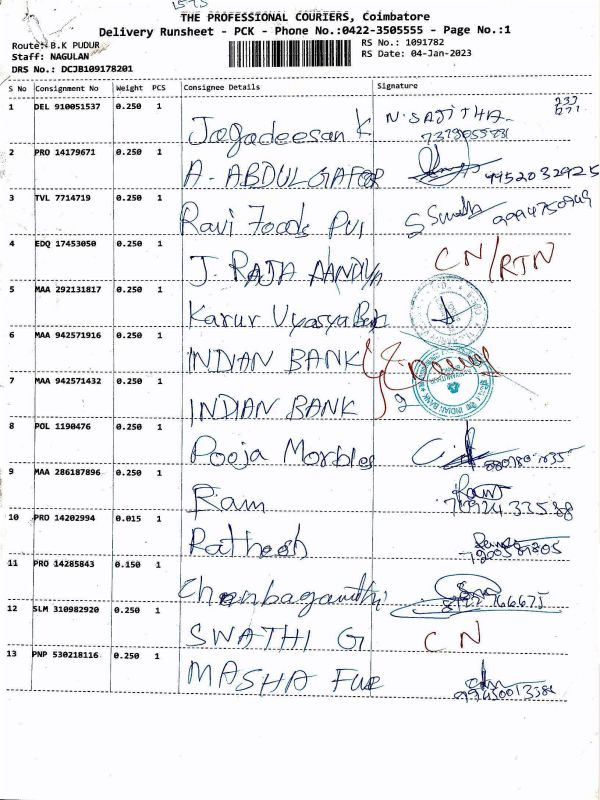 THE PROFESSIONAL COURIERS, Coimbatore
Delivery Runsheet - PCK - Phone No.:0422-3505555 - Page No.:1
Route: B.K PUDUR
RS No.: 1091782
Staff: NAGULAN
RS Date: 04-Jan-2023
DRS No.: DCJB109178201
S No Consignment No Weight PCS Consignee Details Signature
1 DEL 910051537 0.250 1 Jagadeesan K N. SAJITHA
2 PRO 14179671 0.250 1 A. ABDUL GAFOR 9952032925
3 TVL 7714719 0.250 1 Ravi Foods Pvt
4 EDQ 17453050 0.250 1 J. RAJA CN/RTN
5 MAA 292131817 0.250 1 Karur Vyasya Bank
6 MAA 942571916 0.250 1 INDIAN BANK
7 MAA 942571432 0.250 1 INDIAN BANK
8 POL 1190476 0.250 1 Pooja Marbles
9 MAA 286187896 0.250 1 Ram
10 PRO 14202994 0.015 1 Ratheesh
11 PRO 14285843 0.150 1
12 SLM 310982920 0.250 1 SWATHI G CN
13 PNP 530218116 0.250 1 MASHA